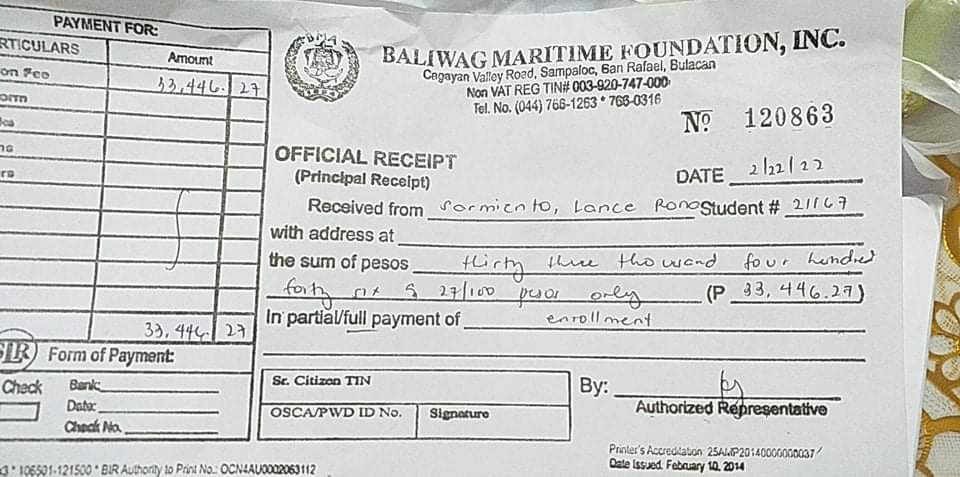 PAYMENT FOR:
RTICULARS Amount
on Fee 33,446. 27
orm
ng
ers
33,446. 27
BIR Form of Payment:
Check Bank:
Date:
Check No.
3 * 106501-121500 * BIR Authority to Print No.: OCN4AU0002063112
BALIWAG MARITIME FOUNDATION, INC.
Cagayan Valley Road, Sampaloc, San Rafael, Bulacan
Non VAT REG TIN# 003-920-747-000
Tel. No. (044) 766-1263 * 766-0316
No. 120863
OFFICIAL RECEIPT
(Principal Receipt)
DATE 2/22/22
Received from Sarmiento, Lance Student # 21167
with address at
the sum of pesos thirty three thousand four hundred
forty six & 27/100 pesos only (P 33,446.27)
In partial/full payment of enrollment
Sr. Citizen TIN
OSCA/PWD ID No. Signature
By:
Authorized Representative
Printer's Accreditation: 25AMP20140000000037
Date Issued: February 10, 2014